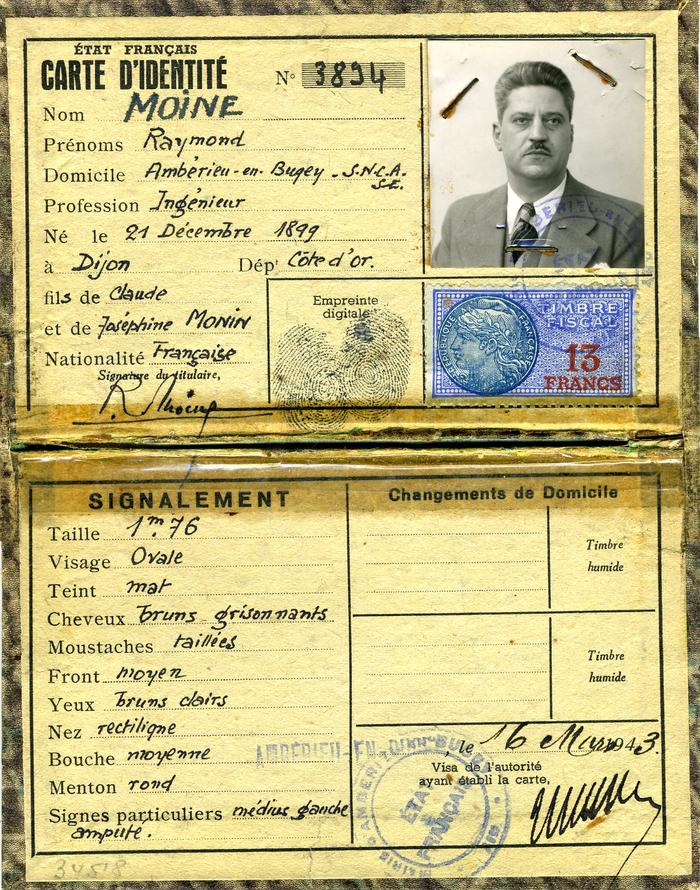 ÉTAT FRANÇAIS
CARTE D'IDENTITÉ
N° 3894
Nom MOINE
Prénoms Raymond
Domicile Ambérieu-en-Bugey. S.N.C.A.
S.E.
Profession Ingénieur
Né le 21 Décembre 1899
à Dijon Dépt Côte d'or.
fils de Claude
et de Joséphine MONIN
Nationalité Française
Signature du titulaire,
R. Moine
Empreinte
digitale
RÉPUBLIQUE FRANÇAISE
TIMBRE
FISCAL
13
FRANCS
SIGNALEMENT
Taille 1m.76
Visage Ovale
Teint mat
Cheveux bruns grisonnants
Moustaches taillées
Front moyen
Yeux bruns clairs
Nez rectiligne
Bouche moyenne
Menton rond
Signes particuliers médius gauche
amputé.
Changements de Domicile
Timbre
humide
Timbre
humide
, le 16 Mars 1943.
Visa de l'autorité
ayant établi la carte,
AMBÉRIEU-EN-
ÉTAT
FRANÇAIS